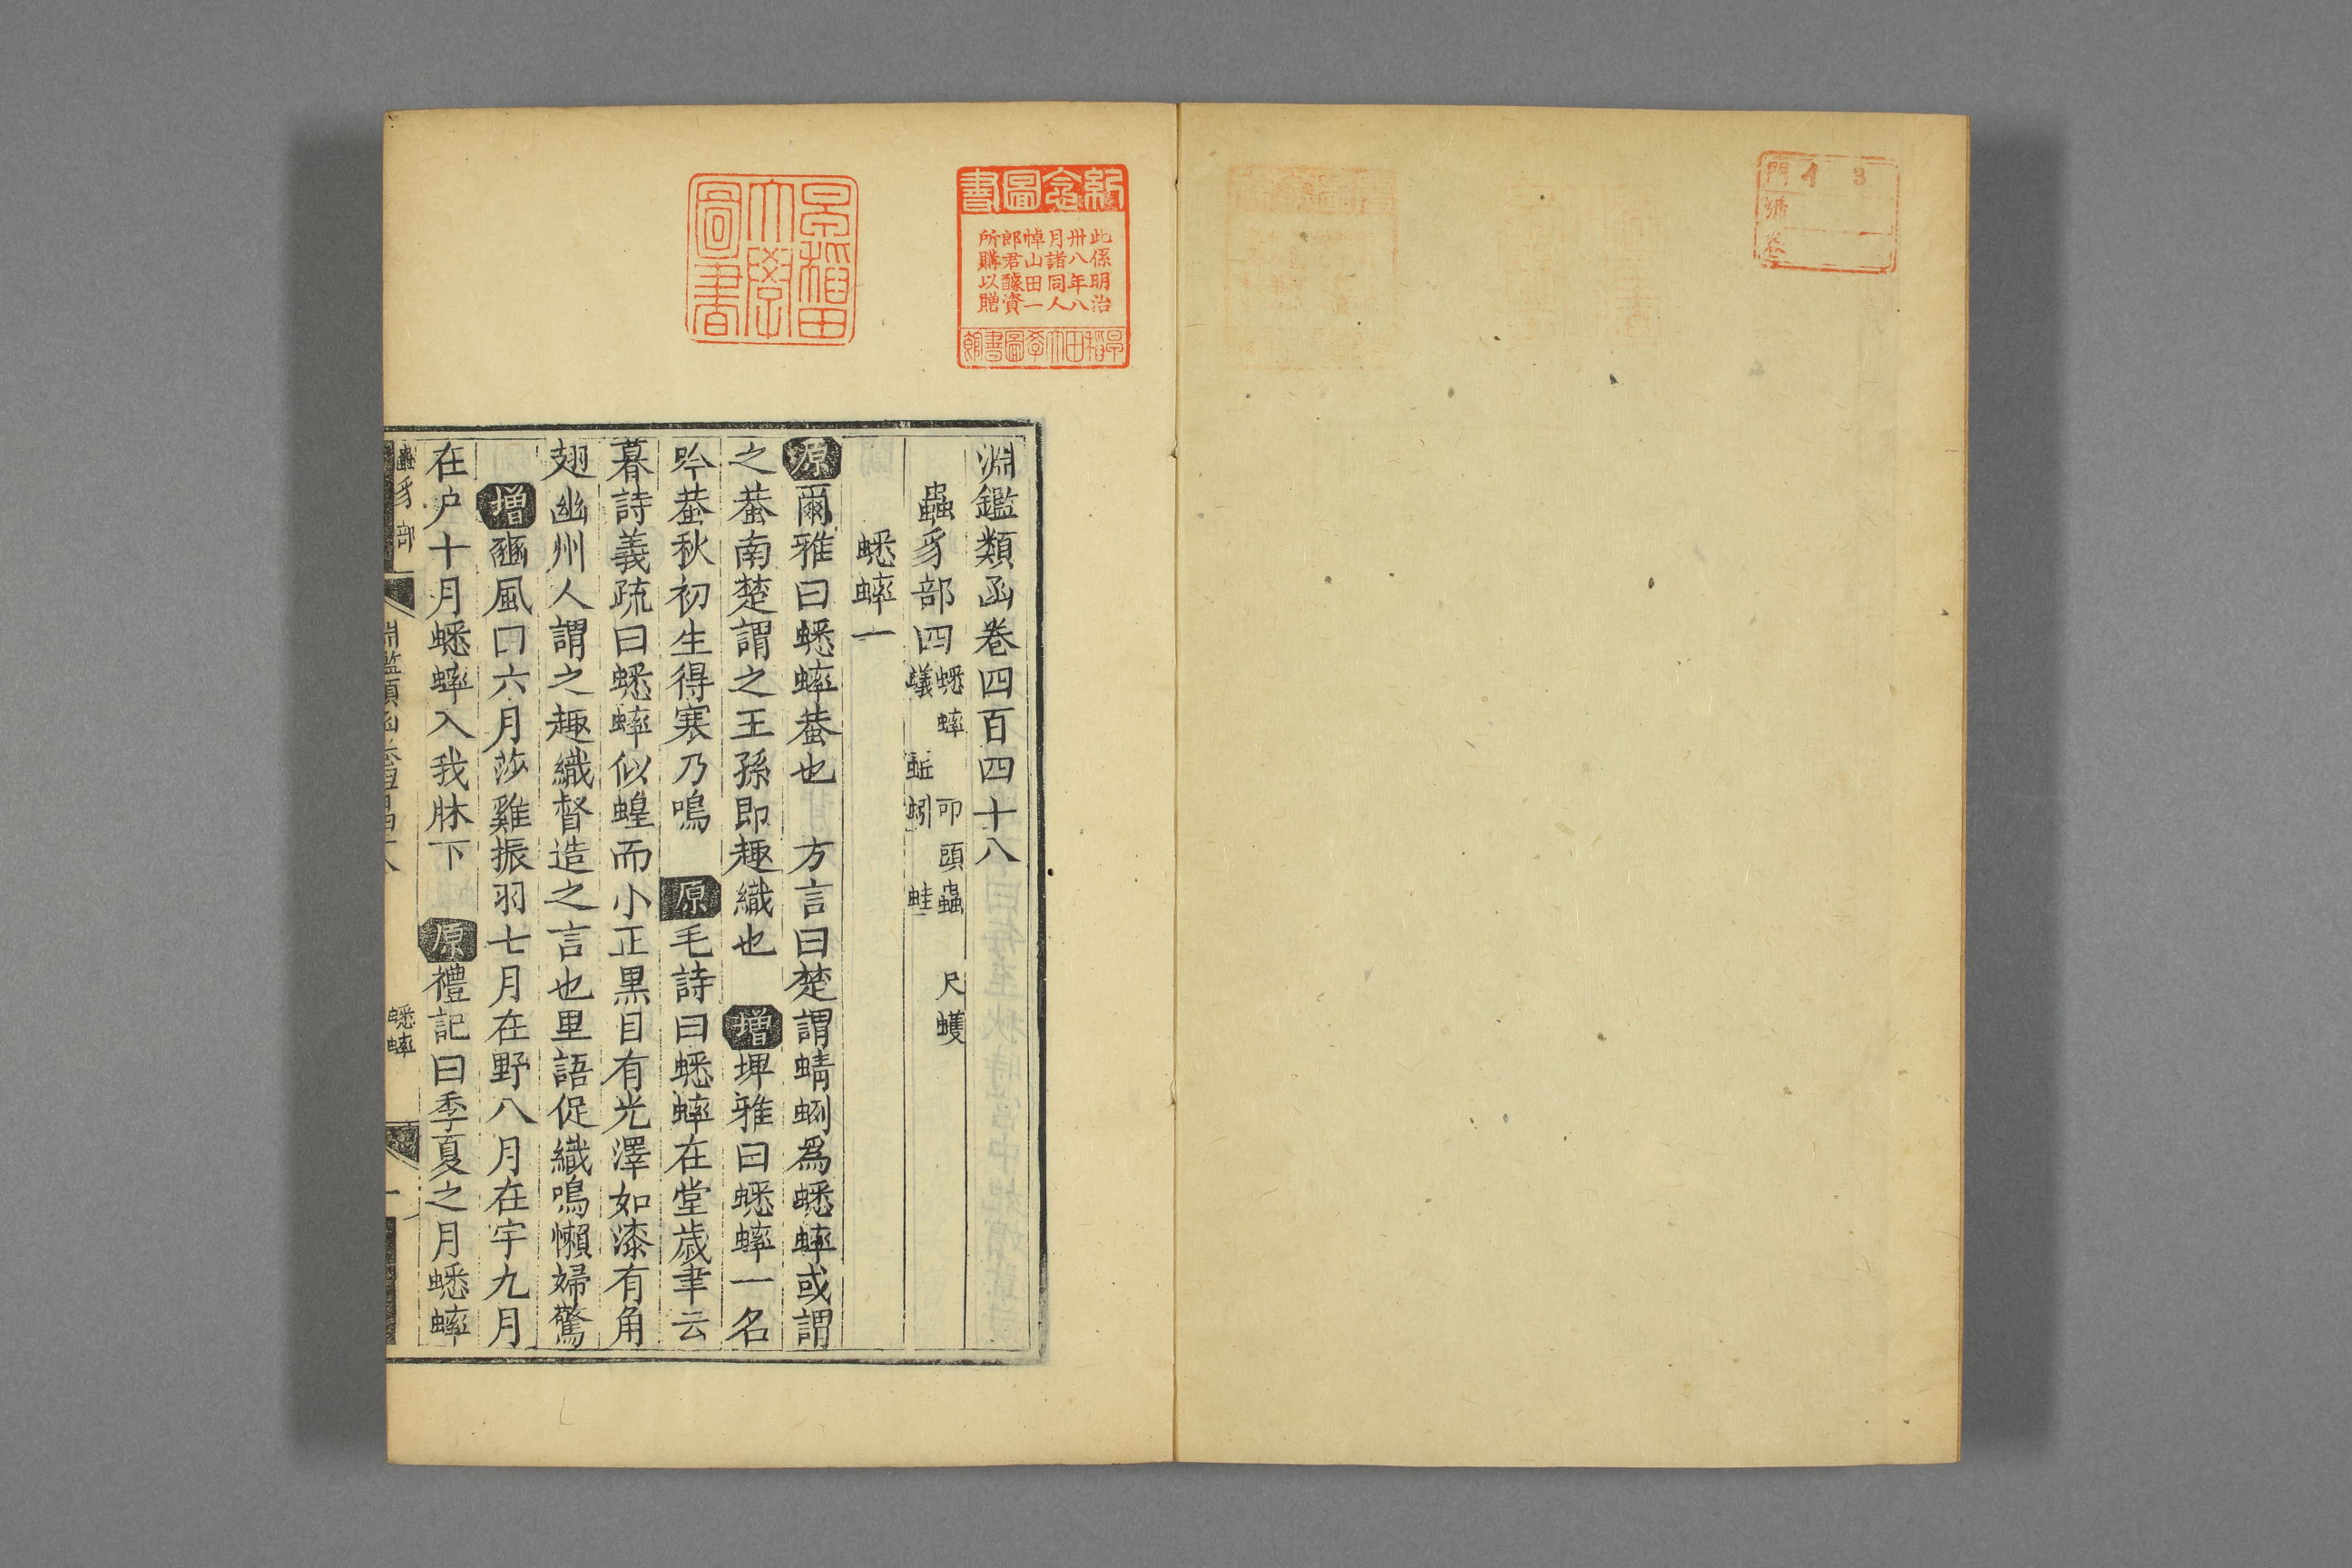 門 イ 3
號
卷
紀念圖書
此係明治
卅八年八
月諸同人
悼山田一
郎君醵資
所購以贈
早稻田大學圖書館
早稻田大學圖書
淵鑑類函卷四百四十八
蟲豸部四 蟋蟀 叩頭蟲 尺蠖
蟻 蚯蚓 蛙
蟋蟀一
原爾雅曰蟋蟀蛬也 方言曰楚謂蜻蛚爲蟋蟀或謂
之蛬南楚謂之王孫即趣織也 增埤雅曰蟋蟀一名
吟蛬秋初生得寒乃鳴 原毛詩曰蟋蟀在堂歲聿云
暮詩義疏曰蟋蟀似蝗而小正黒目有光澤如漆有角
翅幽州人謂之趣織督造之言也里語促織鳴懶婦驚
增豳風曰六月莎雞振羽七月在野八月在宇九月
在户十月蟋蟀入我牀下 原禮記曰季夏之月蟋蟀
蟲豸部
淵鑑類函卷四百四十八
蟋蟀
一